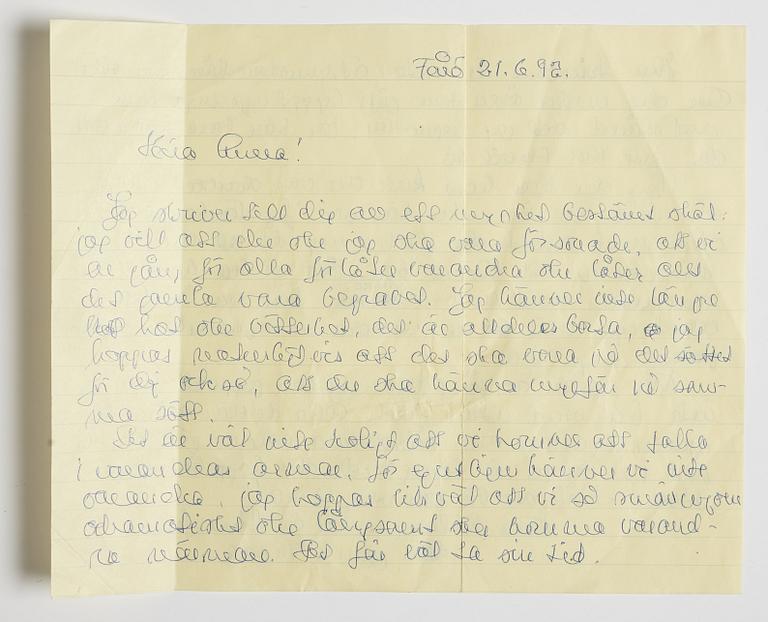 Fårö 21.6.92.
Kära Anna!
Jag skriver till dig av ett mycket bestämt skäl:
jag vill att du och jag ska vara försonade, att vi
en gång för alla förlåter varandra och låter allt
det gamla vara begravet. Jag känner inte längre
hat och bitterhet, det är alldeles borta, jag
hoppas naturligtvis att det ska vara på det sättet
för dig också, att du ska känna ungefär på sam-
ma sätt.
Det är väl inte troligt att vi kommer att falla
i varandras armar, för egentligen känner vi inte
varandra, jag hoppas likväl att vi så småningom
odramatiskt och långsamt ska komma varand-
ra närmare. Det får väl ta sin tid.